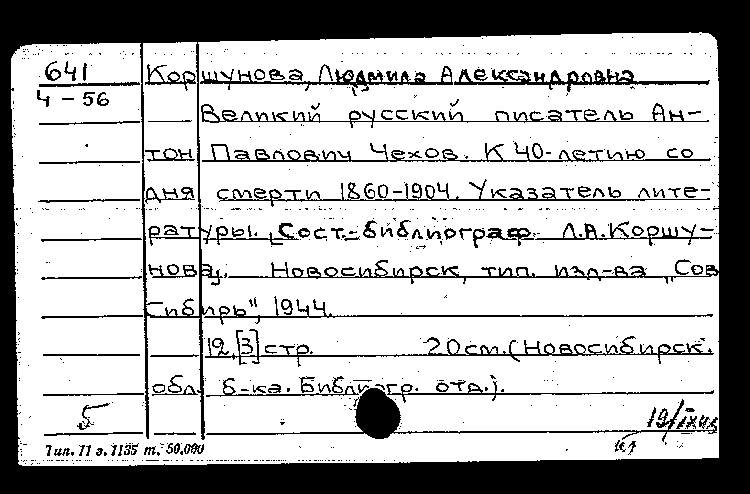 641 Коршунова, Людмила Александровна
4 – 56
Великий русский писатель Ан-
тон Павлович Чехов. К 40-летию со
дня смерти 1860–1904. Указатель лите-
ратуры. [Сост.-библиограф Л.А.Коршу-
нова]. Новосибирск, тип. изд-ва „Сов
Сибирь", 1944.
12,[3] стр. 20см.(Новосибирск.
обл. б-ка. Библиогр. отд.).
5
Тип. 11 з. 1135 т. 50,000